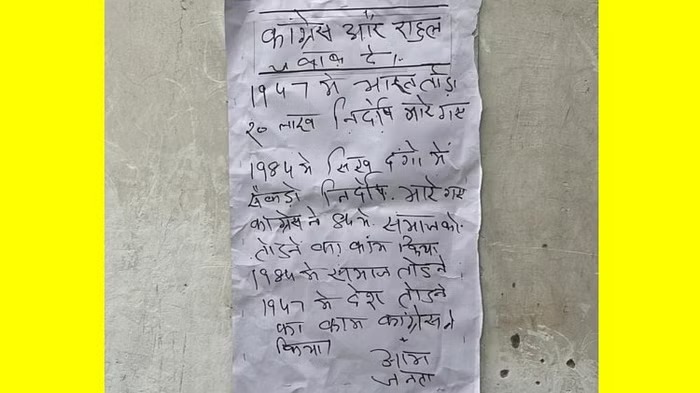 कांग्रेस और राहुल
जवाब दे।
1947 मे भारत तोड़ा
20 लाख निर्दोष मारे गए
1984 मे सिख दंगो में
सैकड़ो निर्दोष मारे गए
कांग्रेस ने 84 मे समाज को
तोडने का काम किया
1984 मे समाज तोडने
1947 मे देश तोडने
का काम कांग्रेस ने
किया।
आम
जनता